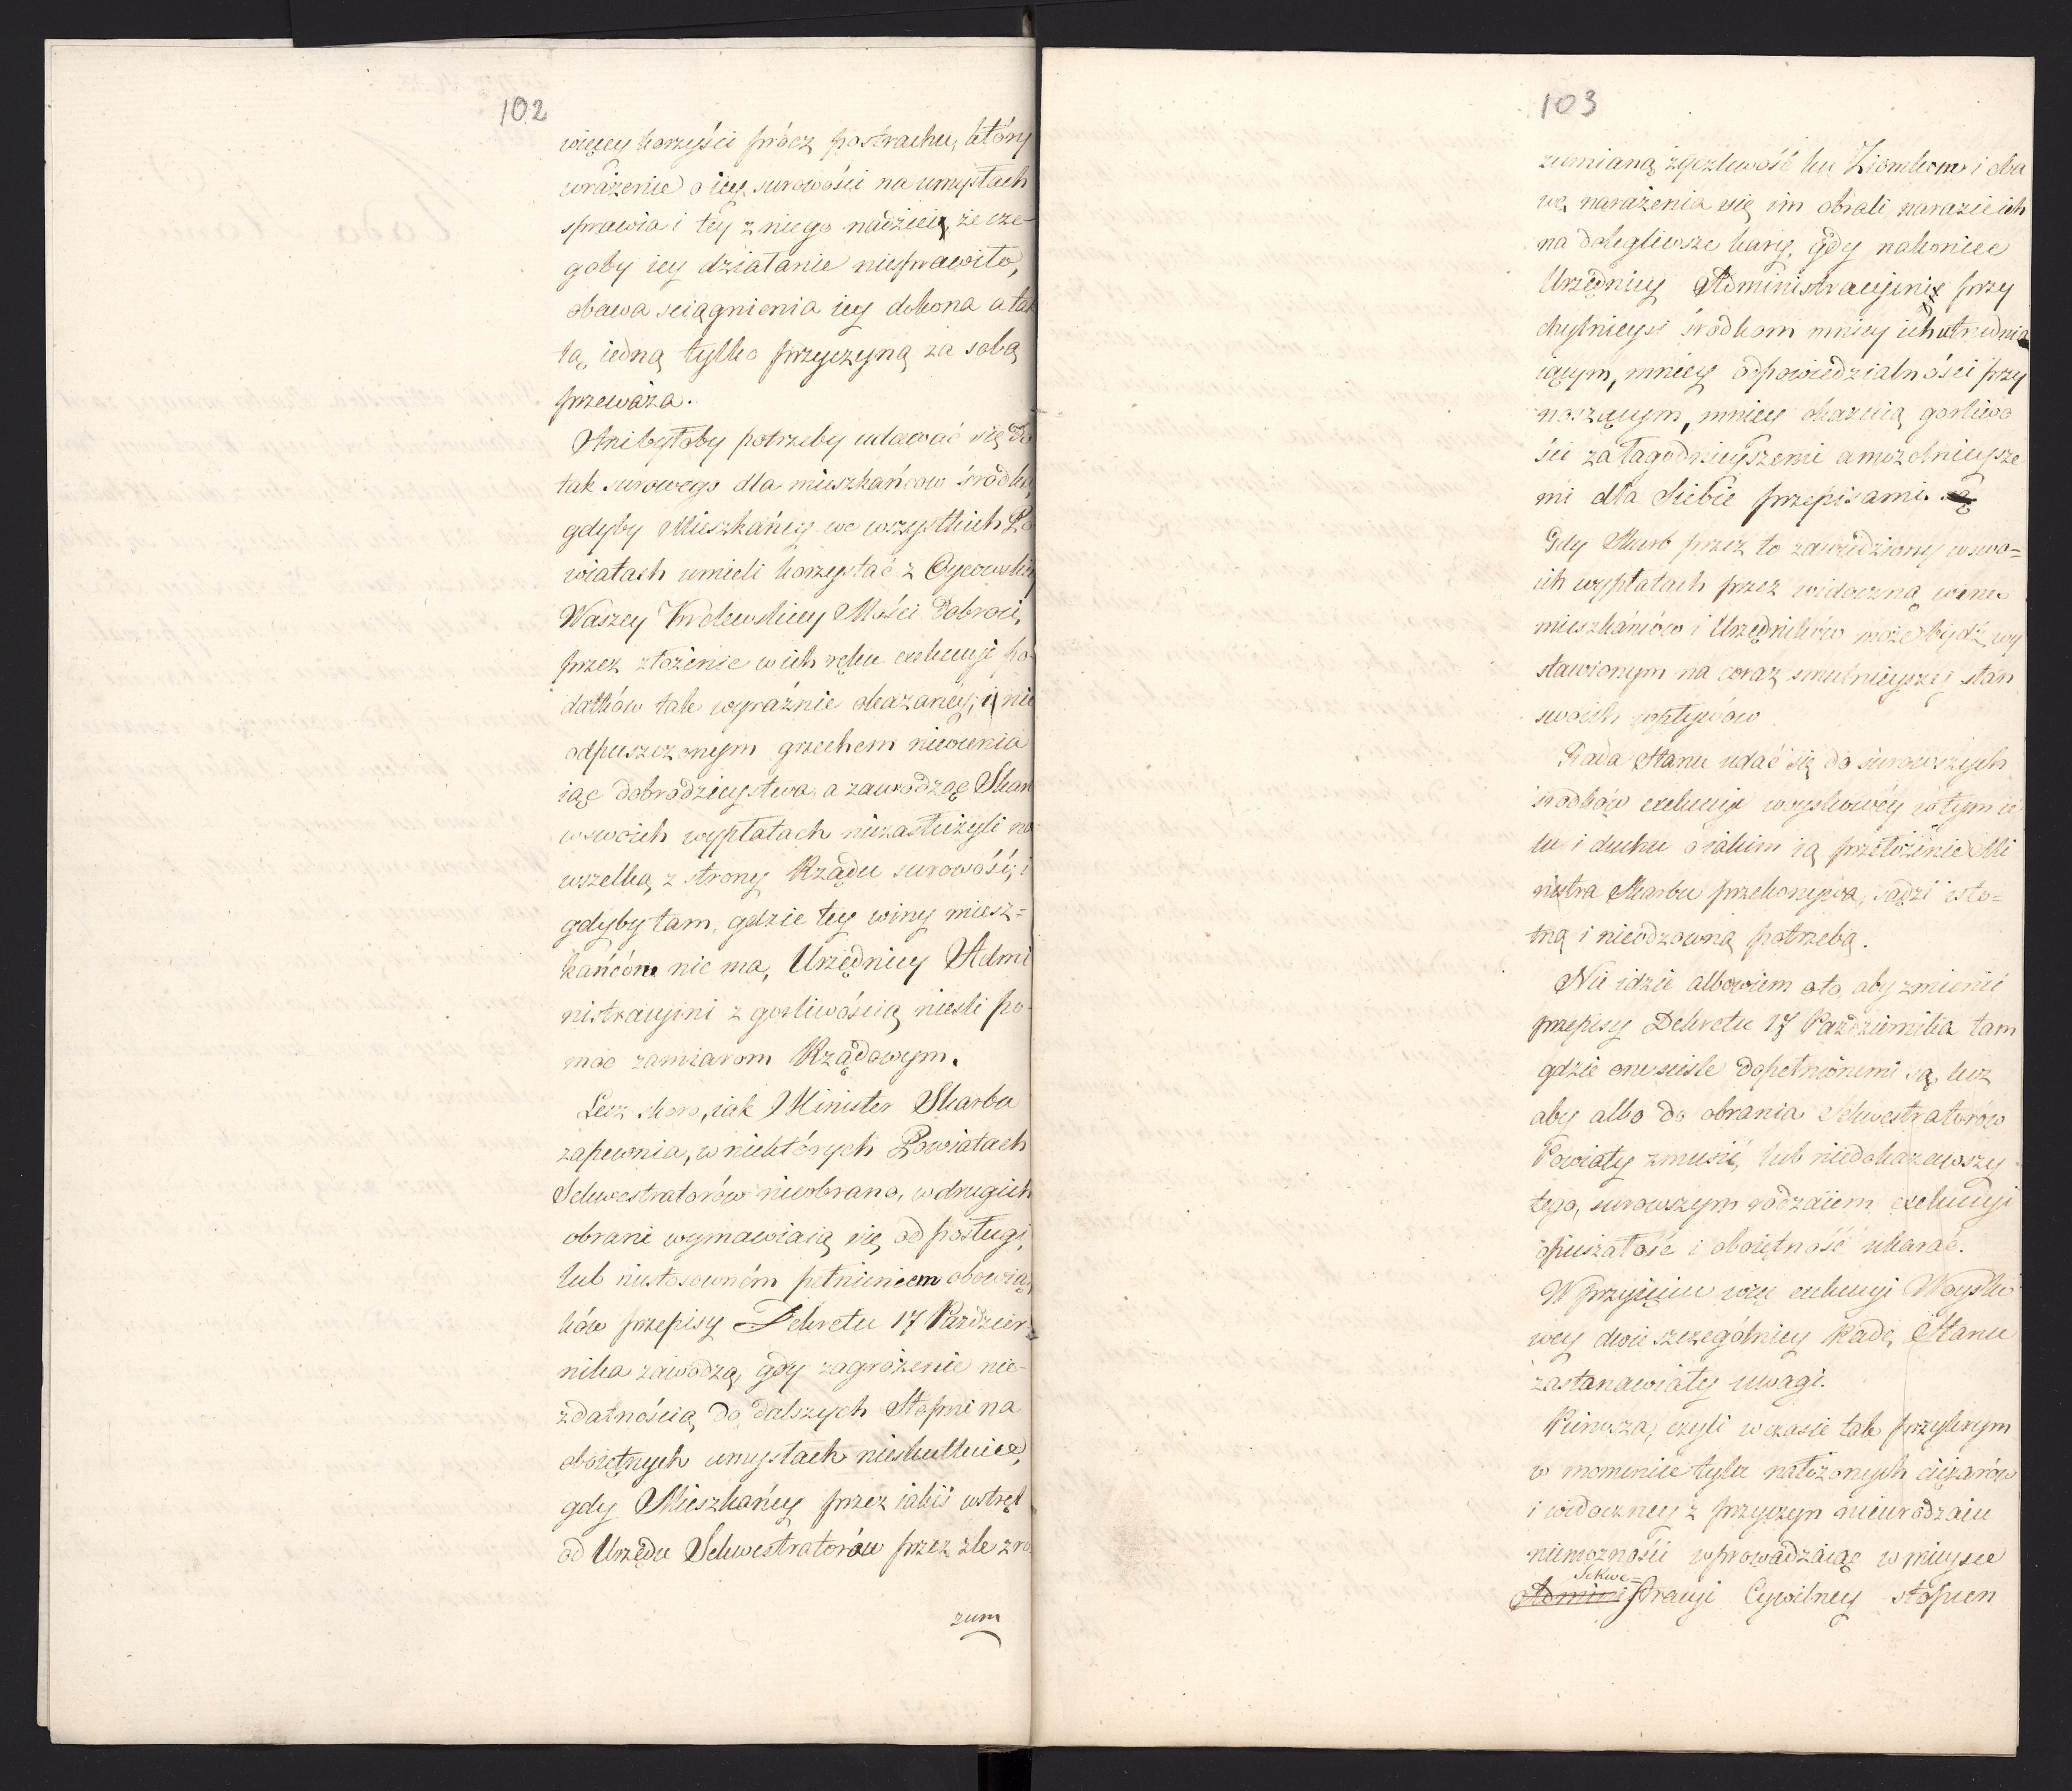 102
więcey korzyści prócz postrachu, który
wrażenie o iey surowości na umysłach
sprawia i tey z niego nadzieię, że cze-
goby iey działanie niesprawiło,
obawa sciągnienia iey dokona a tak
tą iedną tylko przyczyną za sobą
przeważa.
Anibyłoby potrzeby udawać się do
tak surowego dla mieszkańcow środka,
gdyby Mieszkańcy we wszystkich Po
wiatach umieli korzystać z Oycowskiey
Waszey Krolewskiey Mości Dobroci,
przez złożenie w ich ręku exekucyi po-
datków tak wyraźnie okazaney, i nie
odpuszczonym grzechem nieocenia
iąc dobrodzieystwa, a zawodząc Skarb
w swoich wypłatach niezasłużyli na
wszelką z strony Rządu surowość, i
gdyby tam, gdzie tey winy miesz=
kańców nie ma, Urzędnicy Admi
nistracyini z gorliwością niesli po-
moc zamiarom Rządowym.
Lecz skoro, iak Minister Skarbu
zapewnia, w niektórych Powiatach
Sekwestratorów nieobrano, w drugich
obrani wymawiaią się od posługi,
lub niestosowném pełnieniem obowiąz
ków przepisy Dekretu 17 Paździer=
nika zawodzą, gdy zagrożenie nie-
zdatnością do dalszych Stopni na
oboiętnych umysłach nieskutkuie,
gdy Mieszkańcy przez iakiś wstręt
od Urzędu Sekwestratorów przez źle zro-
zum
103
zumianą życzliwość ku Ziomkom i oba
wę narażenia się im obrali narazić ich
na dolegliwsze kary, gdy nakoniec
Urzędnicy Administracyini przy
chylnieysi środkom mniey ich utrudnia
iącym, mniey odpowiedzialności przy
noszącym, mniey okazuią gorliwo
ści za łagodnieyszemi a mozolnieysze
mi dla siebie przepisami. są
Gdy Skarb przez to zawiedziony w swo=
ich wypłatach przez widoczną winę
mieszkańców i Urzędników może bydź wy
stawionym na coraz smutnieyszy stan
swoich wpływow
Rada Stanu udać się do surowszych
srodków exekucyi woyskowéy w tym ce
lu i duchu o iakim ią przełożenie Mi
nistra Skarbu przekonywa, sądzi isto=
tną i nieodzowną potrzebą.
Nie idzie albowiem oto, aby zmienić
przepisy Dekretu 17 Pazdziernika tam
gdzie one scisle dopełnionemi są, lecz
aby albo do obrania Sekwestratorów
Powiaty zmusić, lub niedokazawszy
tego, surowszym rodzaiem exekucyi
opieszałość i oboiętność ukarać.
W przyięciu więc exekucyi Woysko
wey dwie szczególniey Radę Stanu
zastanawiały uwagi.
Pierwsza, czyli w czasie tak przykrym
w momencie tylu nałożonych ciężarów
i widoczney z przyczyn nieurodzaiu
niemożności wprowadzaiąc w mieysce
Sekwe=
Administracyi Cywilney stopien